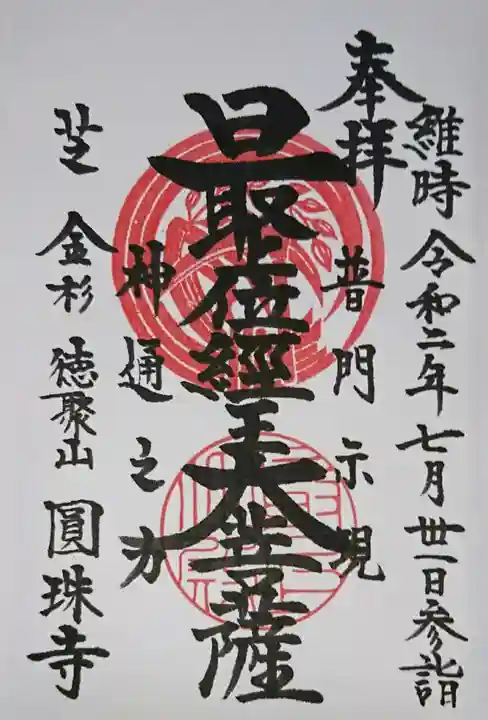 維時 令和二年七月丗一日参詣
奉拝
普門示現
最上位經王大菩薩
神通之力
芝 金杉 徳聚山 圓珠寺